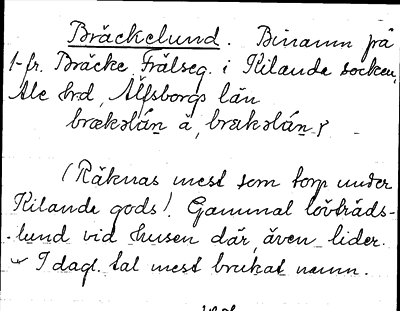 Bräckelund. Binamn på
1-fr. Bräcke Frälseg. i Kilanda socken,
Ale hrd, Älfsborgs län
brækəlán a, brækəlán ɣ
(Räknas mest som torp under
Kilanda gods). Gammal lövträds-
-lund vid husen där, även lider.
I dagl. tal mest brukat namn.